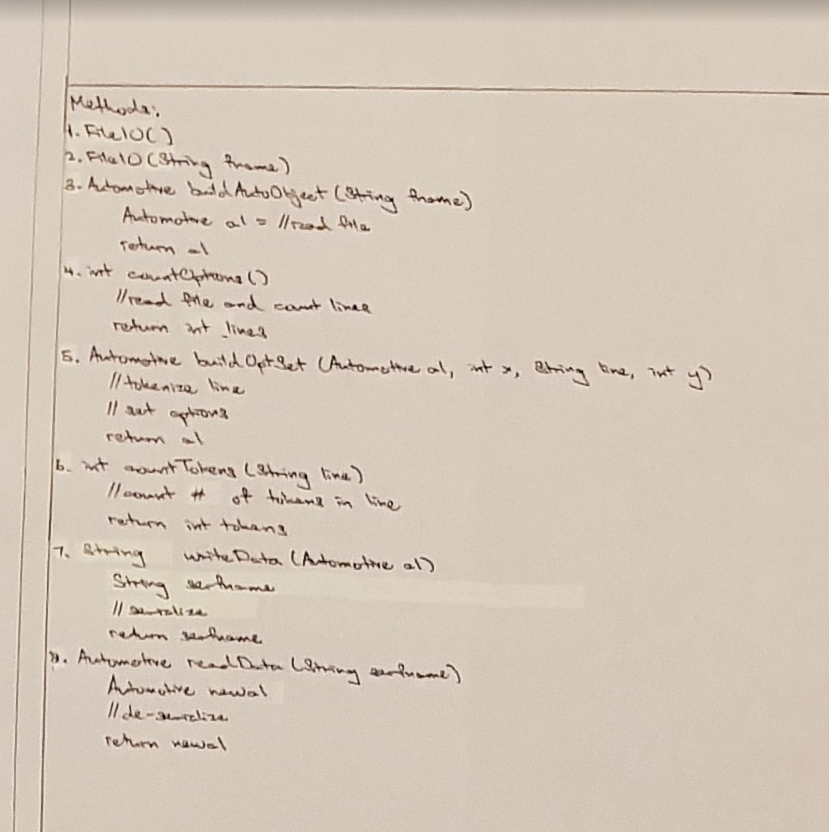 Methods:
1. FileIO()
2. FileIO (String fname)
3. Automotive buildAutoObject (String fname)
Automotive a1 = //read file
return a1
4. int countOptions()
//read file and count lines
return int lines
5. Automotive buildOptSet (Automotive a1, int x, String line, int y)
//tokenize line
// set options
return a1
6. int countTokens (String line)
//count # of tokens in line
return int tokens
7. String writeData (Automotive a1)
String serfname
// serialize
return serfname
8. Automotive readData (String serfname)
Automotive newa1
// de-serialize
return newa1